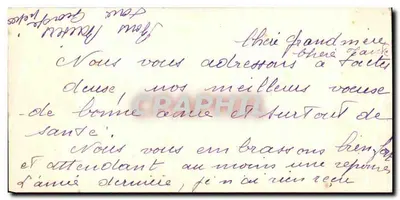 Chère grand mère
chère Tante
Nous vous adressons à toutes
deuse, nos meilleurs voeuse
de bonne anné et surtout de
santé.
Nous vous embrassons bien fort
et attendant au moins une reponse
L'année dernière, je n'ai rien reçu